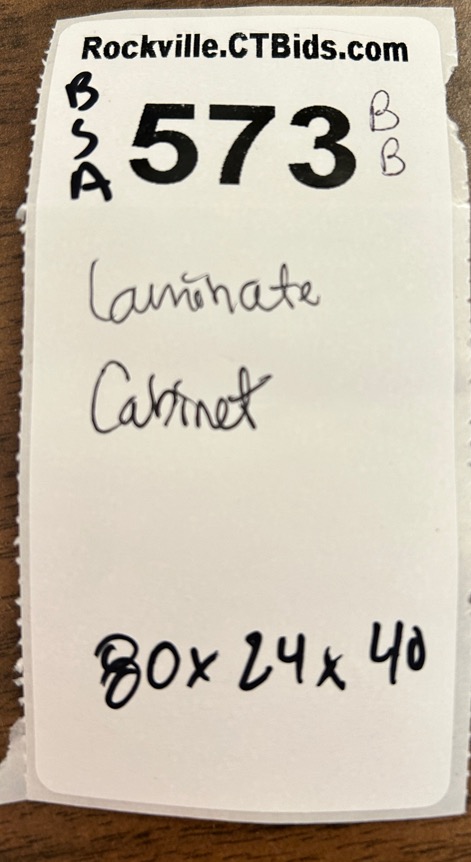 Rockville.CTBids.com
B
S
A
573
B
B
Laminate
Cabinet
80x 24x 40